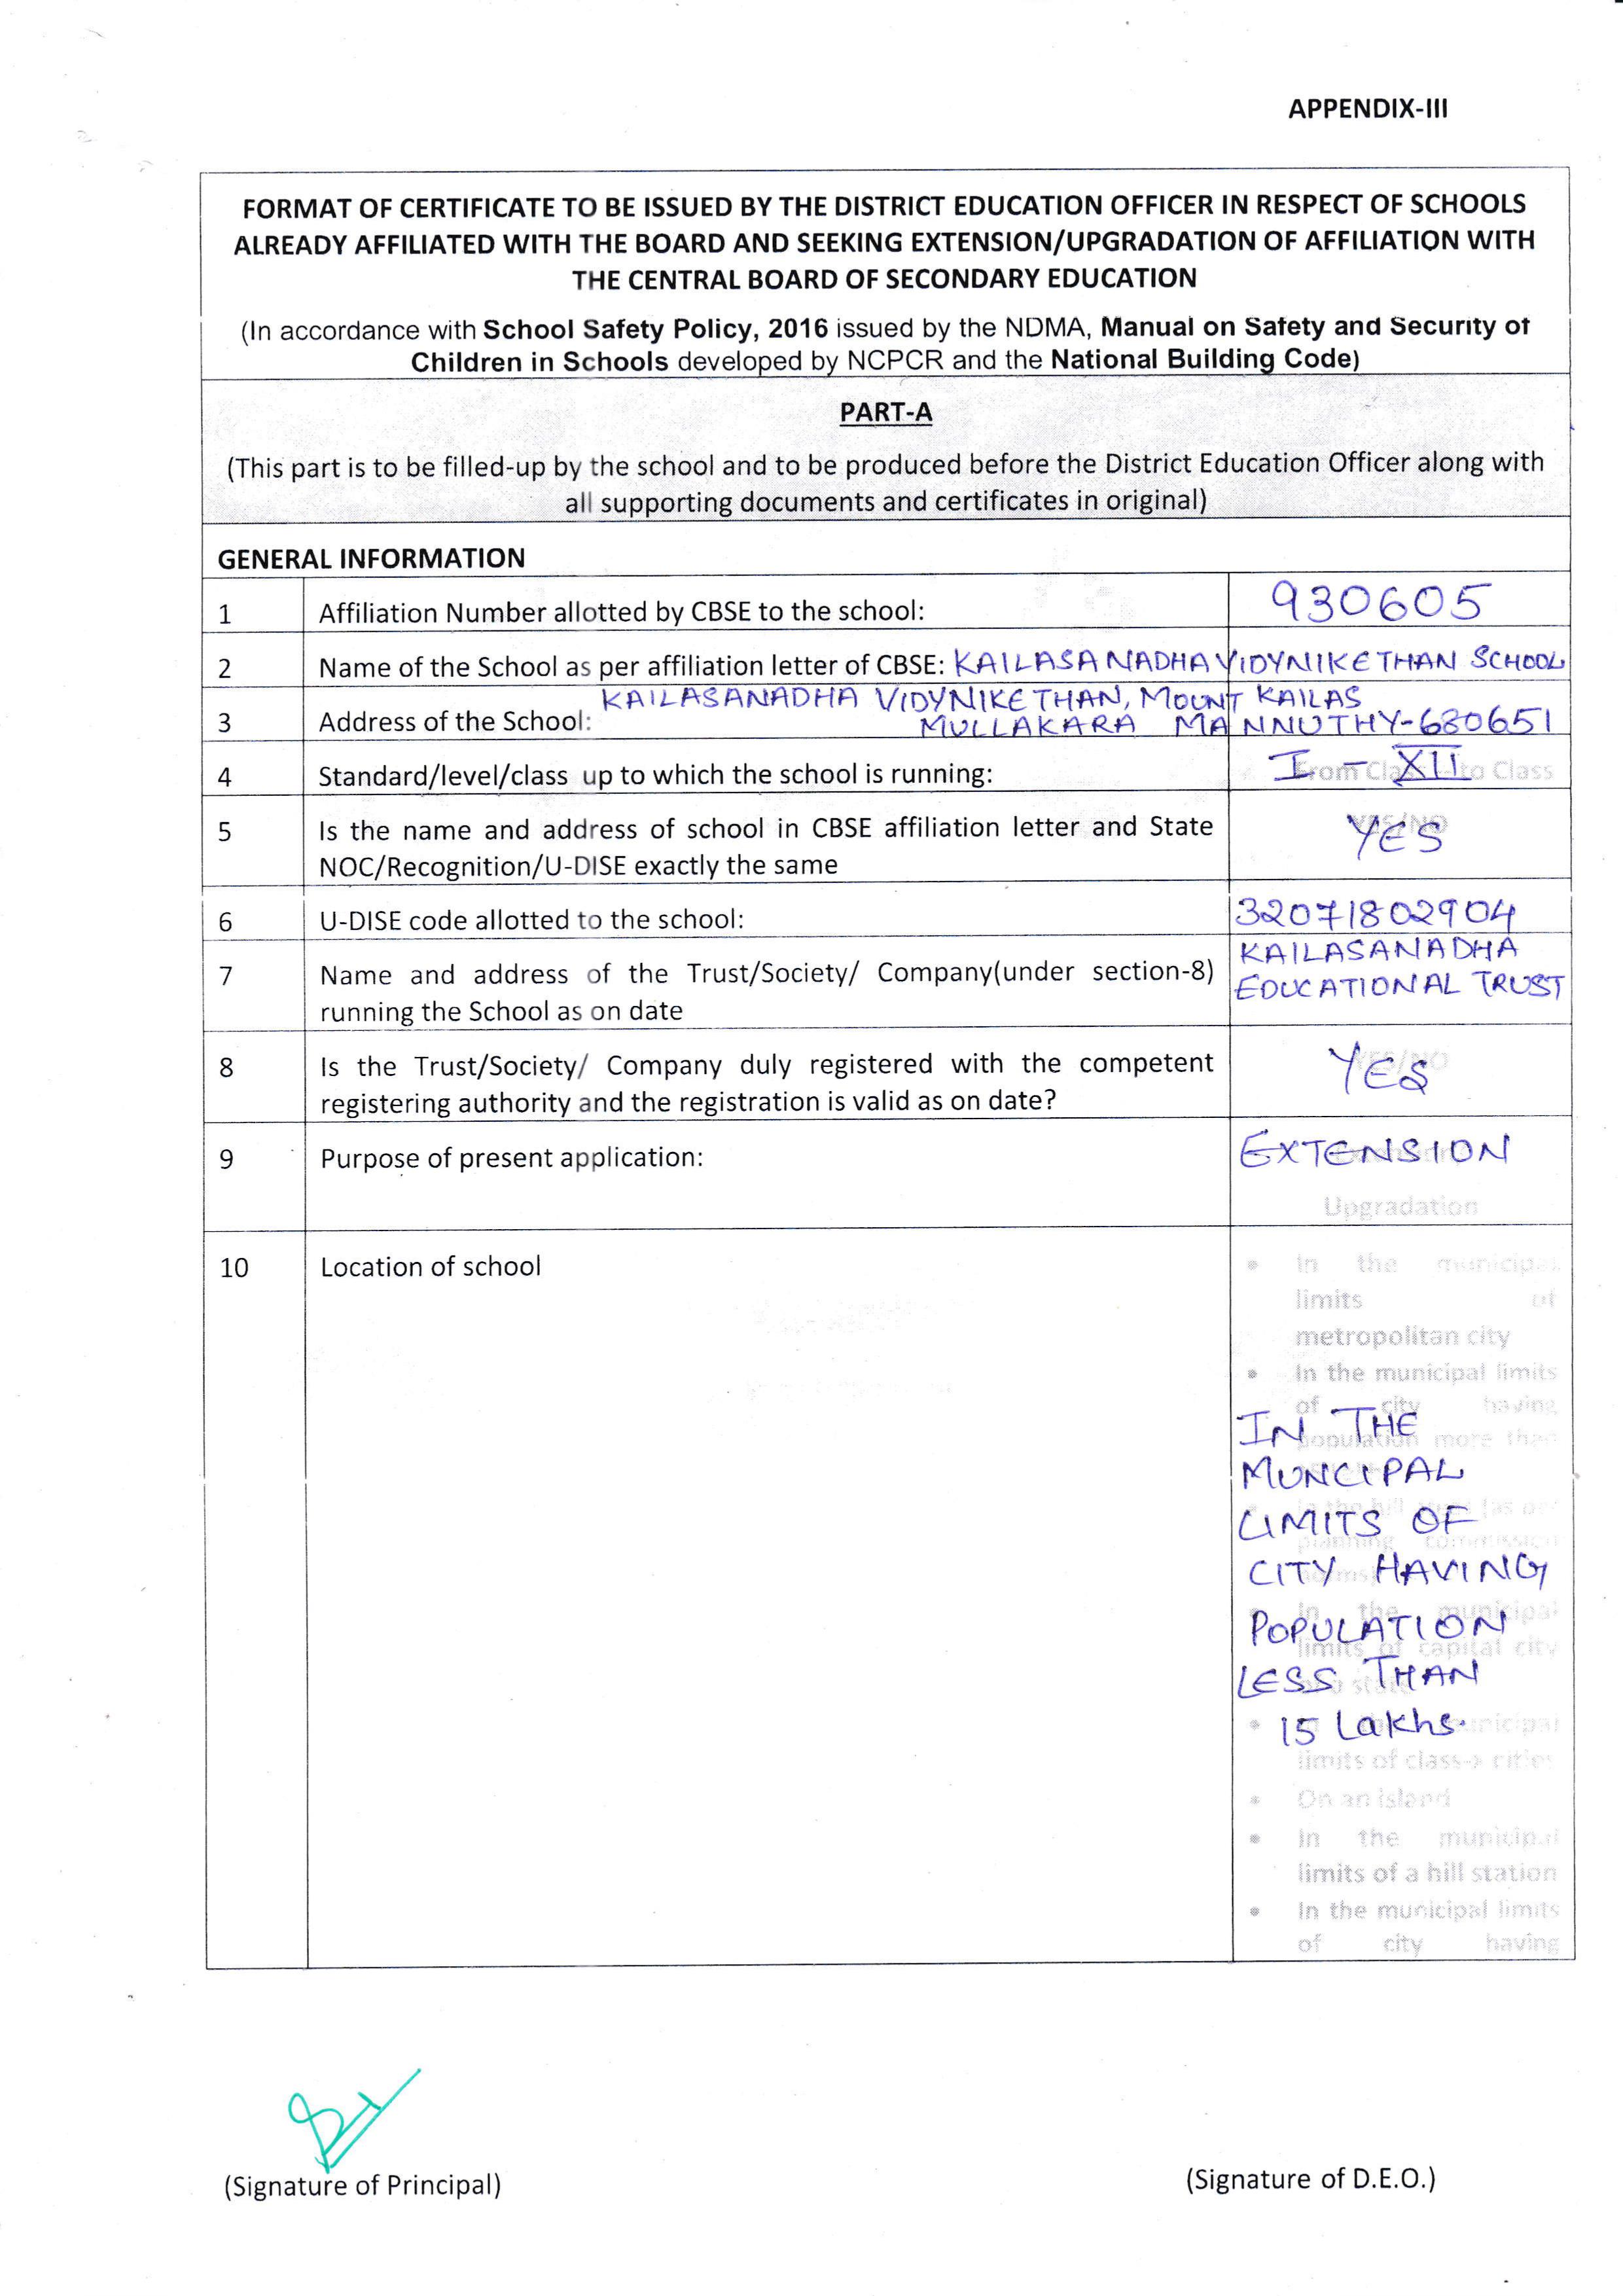 APPENDIX-III
FORMAT OF CERTIFICATE TO BE ISSUED BY THE DISTRICT EDUCATION OFFICER IN RESPECT OF SCHOOLS
ALREADY AFFILIATED WITH THE BOARD AND SEEKING EXTENSION/UPGRADATION OF AFFILIATION WITH
THE CENTRAL BOARD OF SECONDARY EDUCATION
(In accordance with School Safety Policy, 2016 issued by the NDMA, Manual on Safety and Security of
Children in Schools developed by NCPCR and the National Building Code)
PART-A
(This part is to be filled-up by the school and to be produced before the District Education Officer along with
all supporting documents and certificates in original)
GENERAL INFORMATION
1 Affiliation Number allotted by CBSE to the school: 930605
2 Name of the School as per affiliation letter of CBSE: KAILASANADHA VIDYNIKETHAN SCHOOL
KAILASANADHA VIDYNIKETHAN, MOUNT KAILAS
3 Address of the School: MULLAKARA MANNUTHY-680651
4 Standard/level/class up to which the school is running: I - XII
From Class to Class
5 Is the name and address of school in CBSE affiliation letter and State
NOC/Recognition/U-DISE exactly the same
YES/NO
YES
6 U-DISE code allotted to the school: 32071802904
7 Name and address of the Trust/Society/ Company(under section-8)
running the School as on date
KAILASANADHA
EDUCATIONAL TRUST
8 Is the Trust/Society/ Company duly registered with the competent
registering authority and the registration is valid as on date?
YES/NO
YES
9 Purpose of present application: EXTENSION
Upgradation
10 Location of school
• In the municipal
limits of
metropolitan city
• In the municipal limits
of city having
population more than
IN THE
MUNCIPAL
LIMITS OF
CITY HAVING
POPULATION
LESS THAN
15 Lakhs.
• In the hill (as per
planning commission
• In the municipal
limits of capital city
• municipal
limits of class-x cities
• On an island
• In the municipal
limits of a hill station
• In the municipal limits
of city having
(Signature of Principal)
(Signature of D.E.O.)